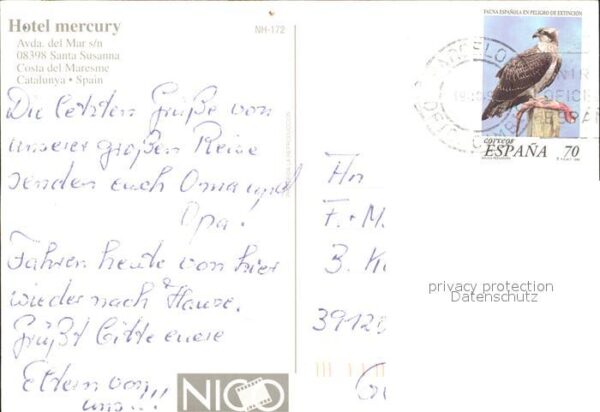 Hotel mercury
Avda. del Mar s/n
08398 Santa Susanna
Costa del Maresme
Catalunya • Spain
NH-172
Die letzten Grüße von
unserer großen Reise
senden euch Oma und
Opa.
Fahren heute von hier
wieder nach Hause.
Grüßt bitte eure
Eltern von
uns...!!
NICO
FAUNA ESPAÑOLA EN PELIGRO DE EXTINCION
CORREOS
ESPAÑA 70
BARCELO
An
F. + M.
B. K
3912
privacy protection
Datenschutz